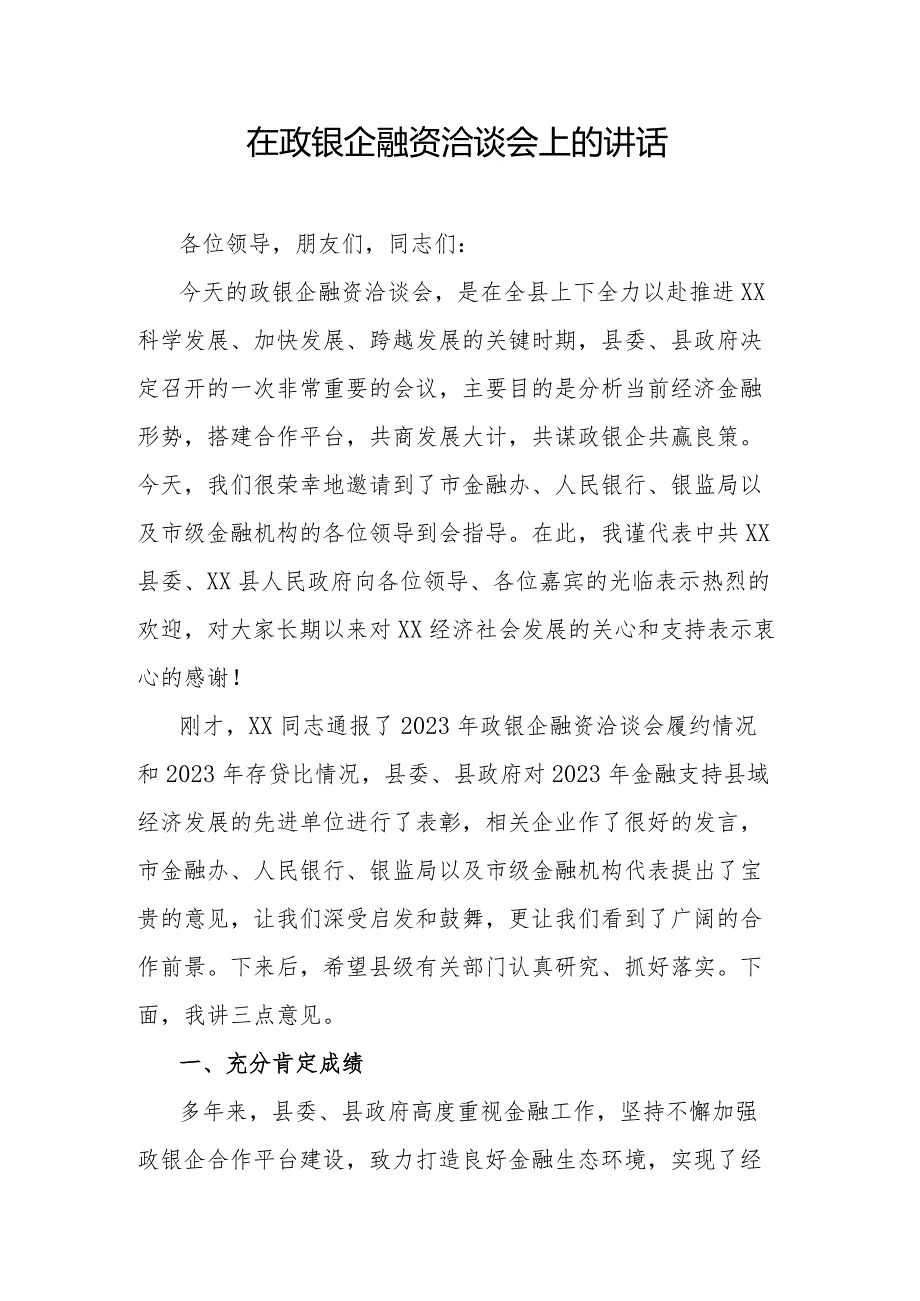 在政银企融资洽谈会上的讲话
各位领导，朋友们，同志们：
今天的政银企融资洽谈会，是在全县上下全力以赴推进 XX
科学发展、加快发展、跨越发展的关键时期，县委、县政府决
定召开的一次非常重要的会议，主要目的是分析当前经济金融
形势，搭建合作平台，共商发展大计，共谋政银企共赢良策。
今天，我们很荣幸地邀请到了市金融办、人民银行、银监局以
及市级金融机构的各位领导到会指导。在此，我谨代表中共 XX
县委、XX 县人民政府向各位领导、各位嘉宾的光临表示热烈的
欢迎，对大家长期以来对 XX 经济社会发展的关心和支持表示衷
心的感谢！
刚才，XX 同志通报了 2023 年政银企融资洽谈会履约情况
和 2023 年存贷比情况，县委、县政府对 2023 年金融支持县域
经济发展的先进单位进行了表彰，相关企业作了很好的发言，
市金融办、人民银行、银监局以及市级金融机构代表提出了宝
贵的意见，让我们深受启发和鼓舞，更让我们看到了广阔的合
作前景。下来后，希望县级有关部门认真研究、抓好落实。下
面，我讲三点意见。
一、充分肯定成绩
多年来，县委、县政府高度重视金融工作，坚持不懈加强
政银企合作平台建设，致力打造良好金融生态环境，实现了经